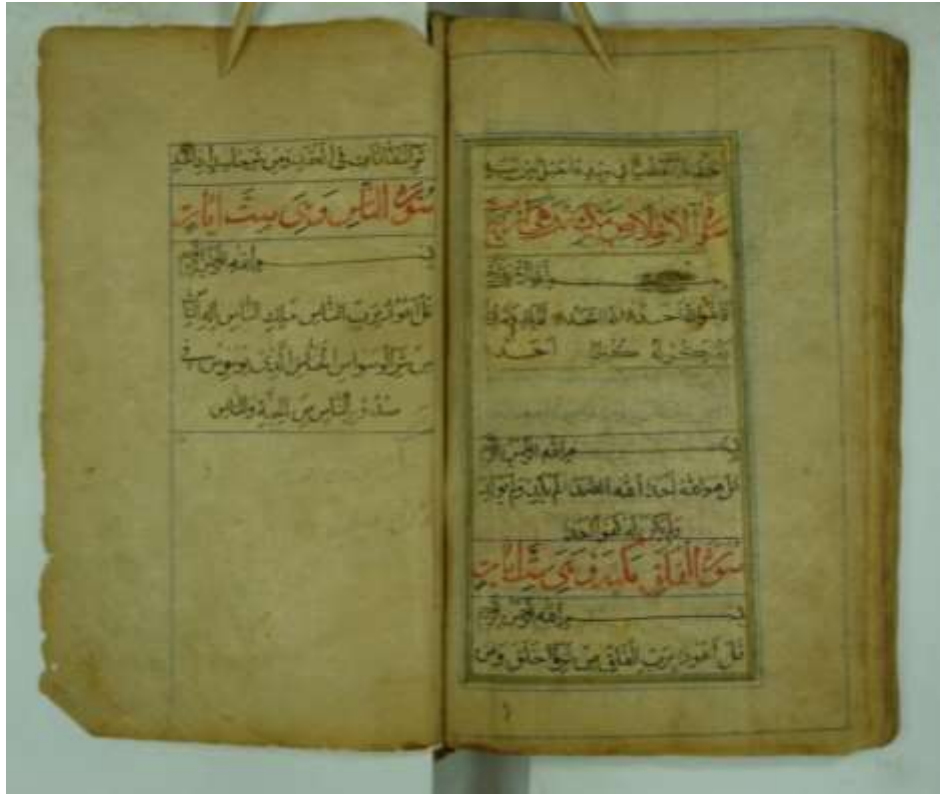 حمالة الحطب في جيدها حبل من مسد
سورة الاخلاص مكية وهى
بسم الله الرحمن الرحيم
قل هو الله احد الله الصمد لم يلد ولم يولد
ولم يكن له كفوا احد
بسم الله الرحمن الرحيم
قل هو الله احد الله الصمد لم يلد ولم يولد
ولم يكن له كفوا احد
سورة الفلق مكية وهى ست ايات
بسم الله الرحمن الرحيم
قل اعوذ برب الفلق من شر ما خلق ومن
شر النفاثات في العقد ومن شر حاسد اذا حسد
سورة الناس وهى ست ايات
بسم الله الرحمن الرحيم
قل اعوذ برب الناس ملك الناس اله الناس
من شر الوسواس الخناس الذي يوسوس في
صدور الناس من الجنة والناس